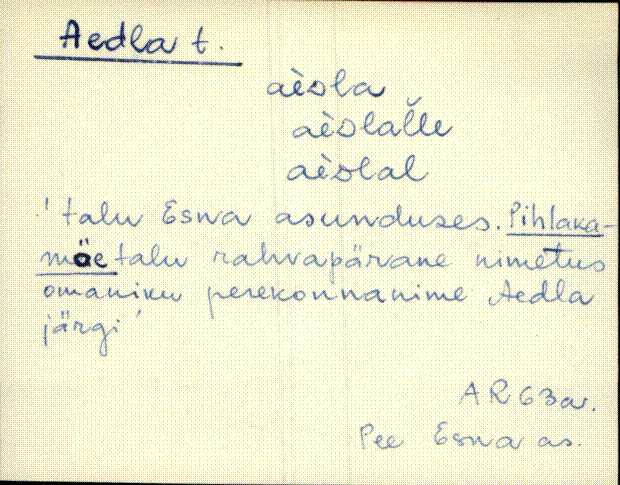 Aedla t.
aèᴅla
aèᴅlal̆le
aèᴅlal
'talu Esna asunduses. Pihlaka-
mäe talu rahvapärane nimetus
omaniku perekonnanime Aedla
järgi'
AR 63a.
Pee Esna as.